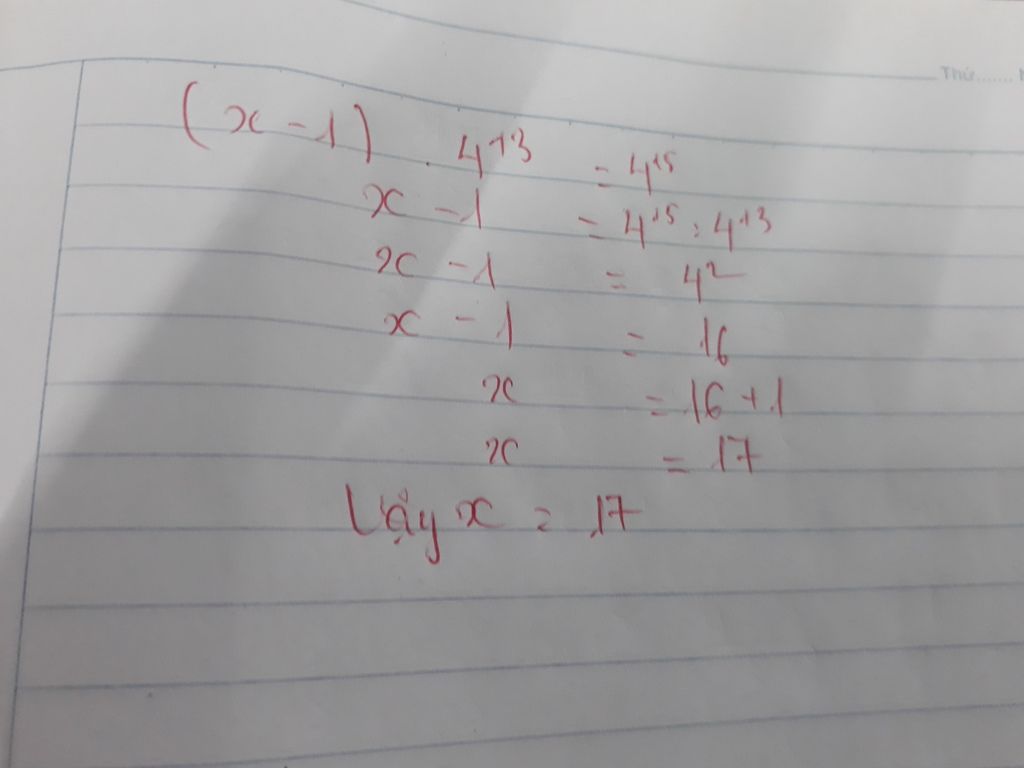 Thứ.......
(x - 1) . 4¹³ = 4¹⁵
x - 1 = 4¹⁵ : 4¹³
x - 1 = 4²
x - 1 = 16
x = 16 + 1
x = 17
Vậy x = 17